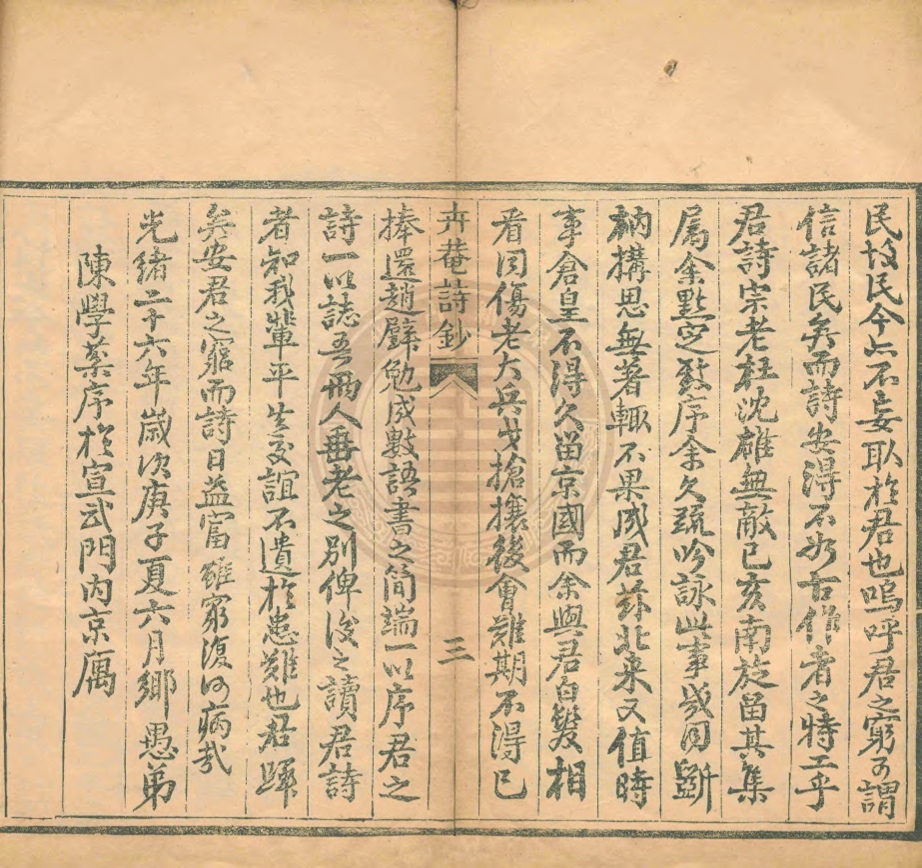 民故民今亦不妄取於君也嗚呼君之窮可謂
信諸民矣而詩安得不如古作者之特工乎
君詩宗老杜沈雄無敵已亥南旋留其集
屬余點定發序余久疏吟詠此事幾同斷
衲搆思無著輒不果成君茲北来又值時
事倉皇不得久留京國而余與君白髮相
看同傷老大兵戈搶攘後會難期不得已
卉菴詩鈔
三
捧還趙璧勉成數語書之簡端一以序君之
詩一以誌吾兩人垂老之別俾後之讀君詩
者知我輩平生交誼不遺於患難也君歸
矣安君之窮而詩日益富雖窮復何病哉
光緒二十六年歲次庚子夏六月鄉愚弟
陳學棻序於宣武門内京寓